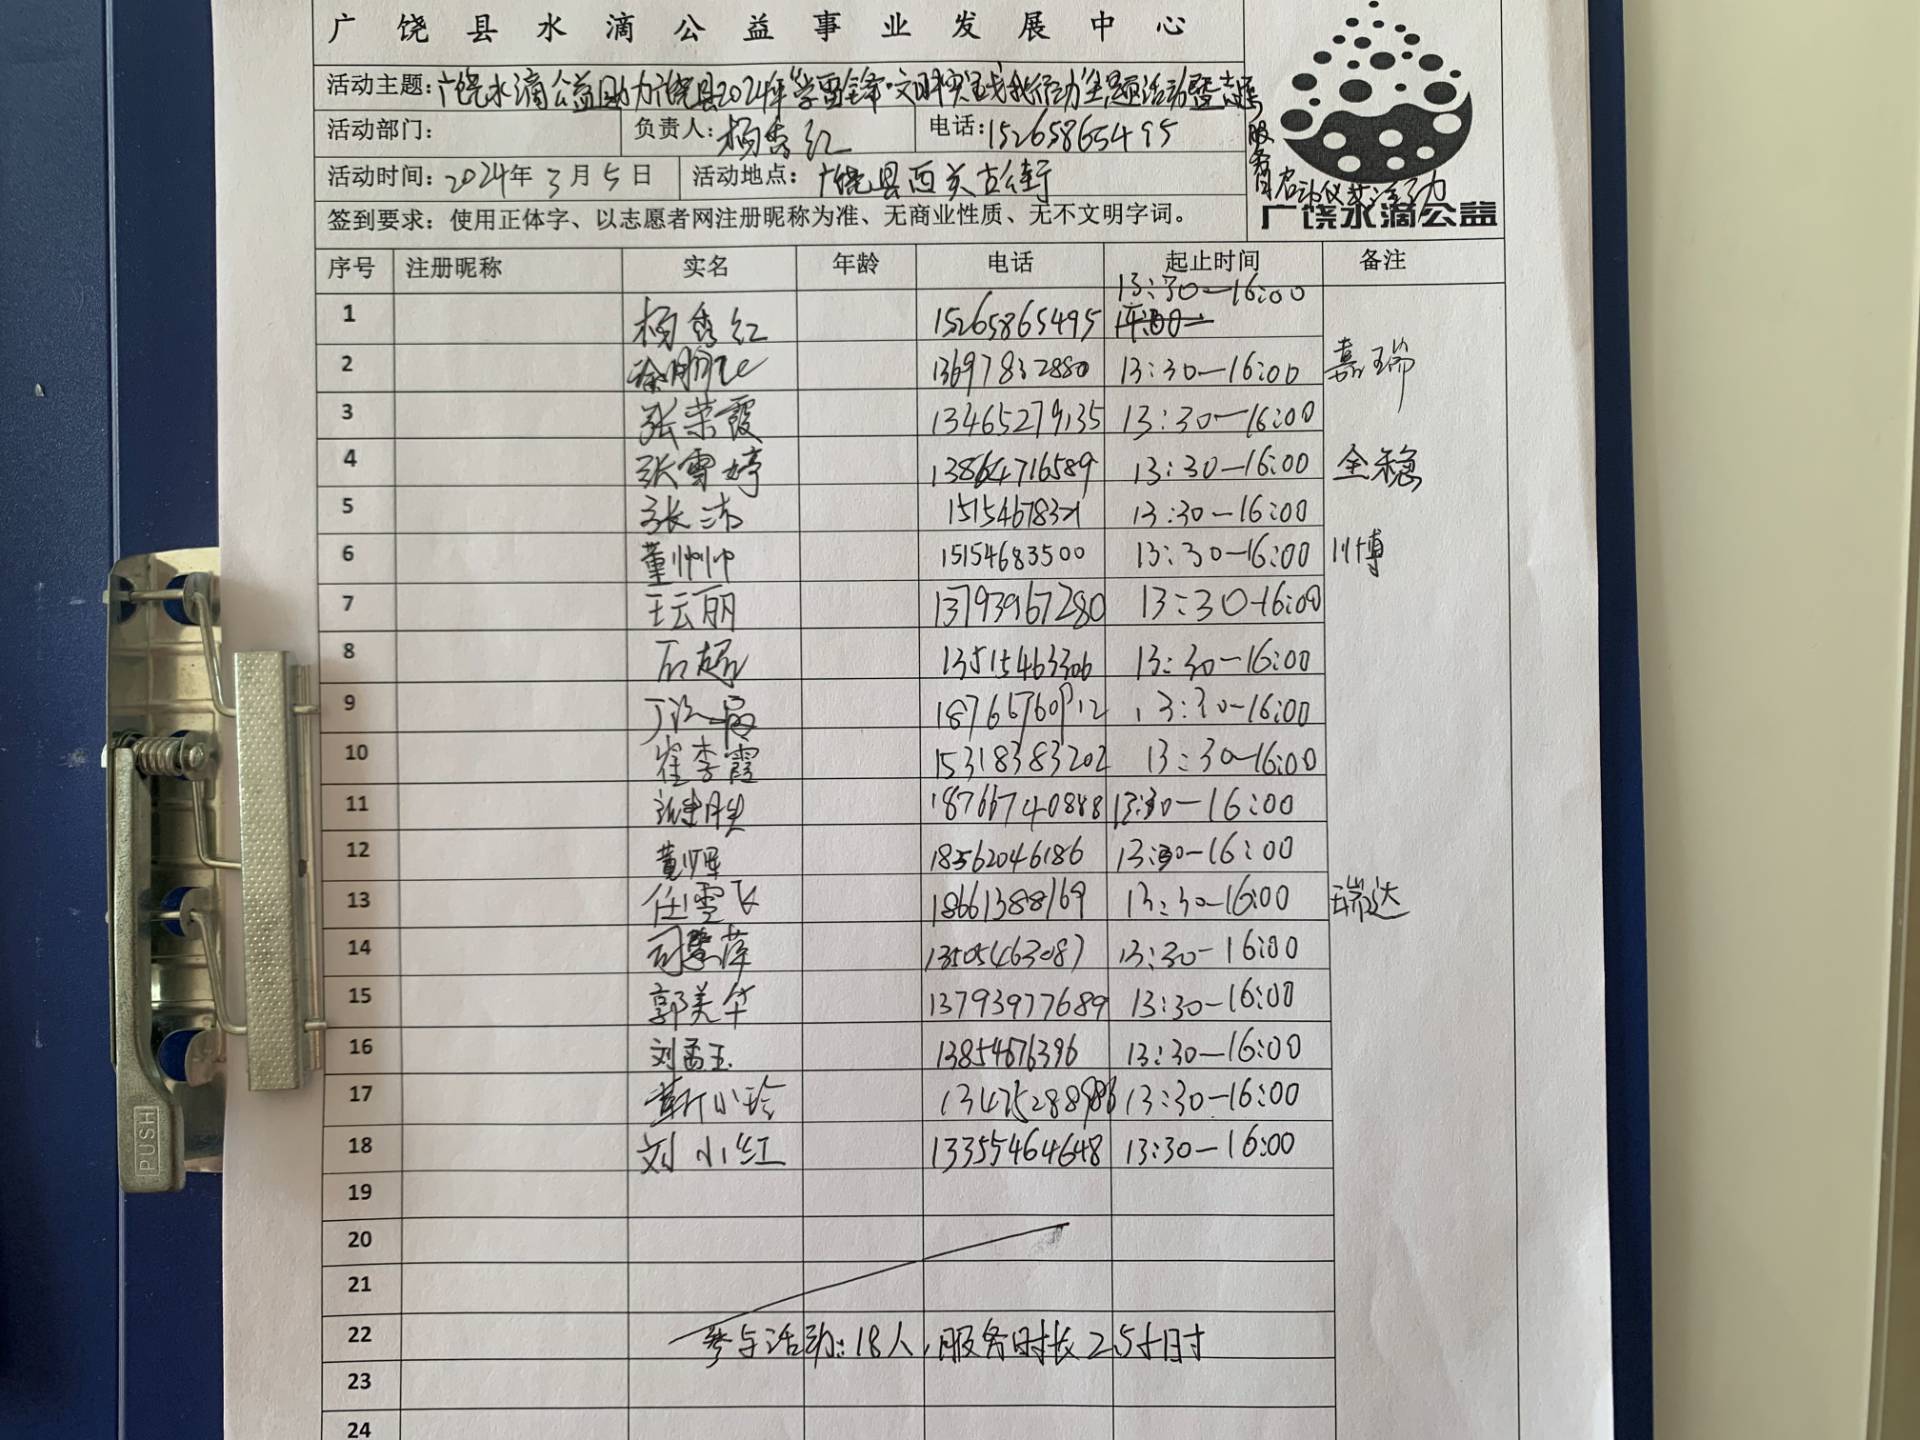 广饶县水滴公益事业发展中心
活动主题:广饶水滴公益助力广饶县2024年"学雷锋·文明实践我行动"主题活动暨志愿
服务月启动仪式活动
活动部门: 负责人:杨秀红 电话:15265865495
活动时间:2024年3月5日 活动地点:广饶县西关古街
广饶水滴公益
签到要求:使用正体字、以志愿者网注册昵称为准、无商业性质、无不文明字词。
序号 注册昵称 实名 年龄 电话 起止时间 备注
1 杨秀红 15265865495 13:30—16:00
2 13697832880 13:30—16:00 嘉瑞
3 张荣霞 13465279135 13:30—16:00
4 张雪婷 13864716589 13:30—16:00 全稳
5 张沛 13:30—16:00
6 董帅帅 15154683500 13:30—16:00 川博
7 王云丽 13793967280 13:30—16:00
8 石超 13515463306 13:30—16:00
9 13:30—16:00
10 崔李霞 15318383202 13:30—16:00
11 18766740888 13:30—16:00
12 18562046186 13:30—16:00
13 任雪飞 18661388169 13:30—16:00 瑞达
14 13505463087 13:30—16:00
15 郭美华 13793977689 13:30—16:00
16 刘孟玉 13854676396 13:30—16:00
17 靳小玲 13:30—16:00
18 刘小红 13355464648 13:30—16:00
19
20
21
22 参与活动:18人,服务时长2.5小时
23
24
PUSH